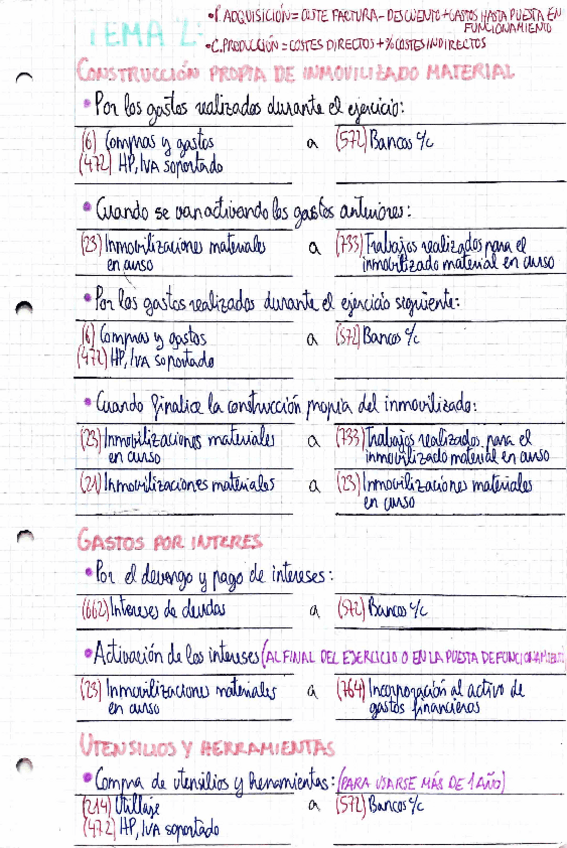 •P. ADQUISICIÓN = COSTE FACTURA - DESCUENTO + GASTOS HASTA PUESTA EN FUNCIONAMIENTO
TEMA 2:
•C. PRODUCCIÓN = COSTES DIRECTOS + % COSTES INDIRECTOS
CONSTRUCCIÓN PROPIA DE INMOVILIZADO MATERIAL
• Por los gastos realizados durante el ejercicio:
(6) Compras y gastos a (572) Bancos c/c
(472) HP, IVA soportado
• Cuando se van activando los gastos anteriores:
(23) Inmovilizaciones materiales a (733) Trabajos realizados para el
en curso inmovilizado material en curso
• Por los gastos realizados durante el ejercicio siguiente:
(6) Compras y gastos a (572) Bancos c/c
(472) HP, IVA soportado
• Cuando finalice la construcción propia del inmovilizado:
(23) Inmovilizaciones materiales a (733) Trabajos realizados para el
en curso inmovilizado material en curso
(21) Inmovilizaciones materiales a (23) Inmovilizaciones materiales
en curso
GASTOS POR INTERES
• Por el devengo y pago de intereses:
(662) Intereses de deudas a (572) Bancos c/c
• Activación de los intereses (AL FINAL DEL EJERCICIO O EN LA PUESTA DE FUNCIONAMIENTO)
(23) Inmovilizaciones materiales a (764) Incorporación al activo de
en curso gastos financieros
UTENSILIOS Y HERRAMIENTAS
• Compra de utensilios y herramientas: (PARA USARSE MÁS DE 1 AÑO)
(214) Utillaje a (572) Bancos c/c
(472) HP, IVA soportado